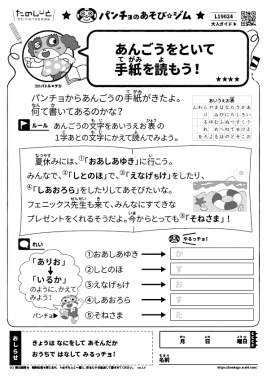 たのしびと
パンチョのあそび★ジム
L19024
大人ガイド
あんごうをといて
手紙を読もう!
★★★★
パンチョからあんごうの手紙がきたよ。
何て書いてあるのかな?
あいうえお表
ルール
あんごうの文字をあいうえお表の
1字あとの文字にかえて読んでみよう。
夏休みには、①「おあしあゆき」に行こう。
みんなで、②「しとのほ」で、③「えなげぅけ」をしたり、
④「しあおろら」をしたりしてあそびたいな。
フェニックス先生も来て、みんなにすてきな
プレゼントをくれるそうだよ。今からとっても⑤「そねさま」!
れい
やるっチョ!
「ありお」
↓
「いるか」
のように、かえて
みよう!
パンチョ
①おあしあゆき → か
②しとのほ → す
③えなげぅけ → お
④しあおろら → す
⑤そねさま → た
おしらせ
きょうは なにをして あそんだか
おうちで はなして みるっチョ!
月 日 曜日
名前